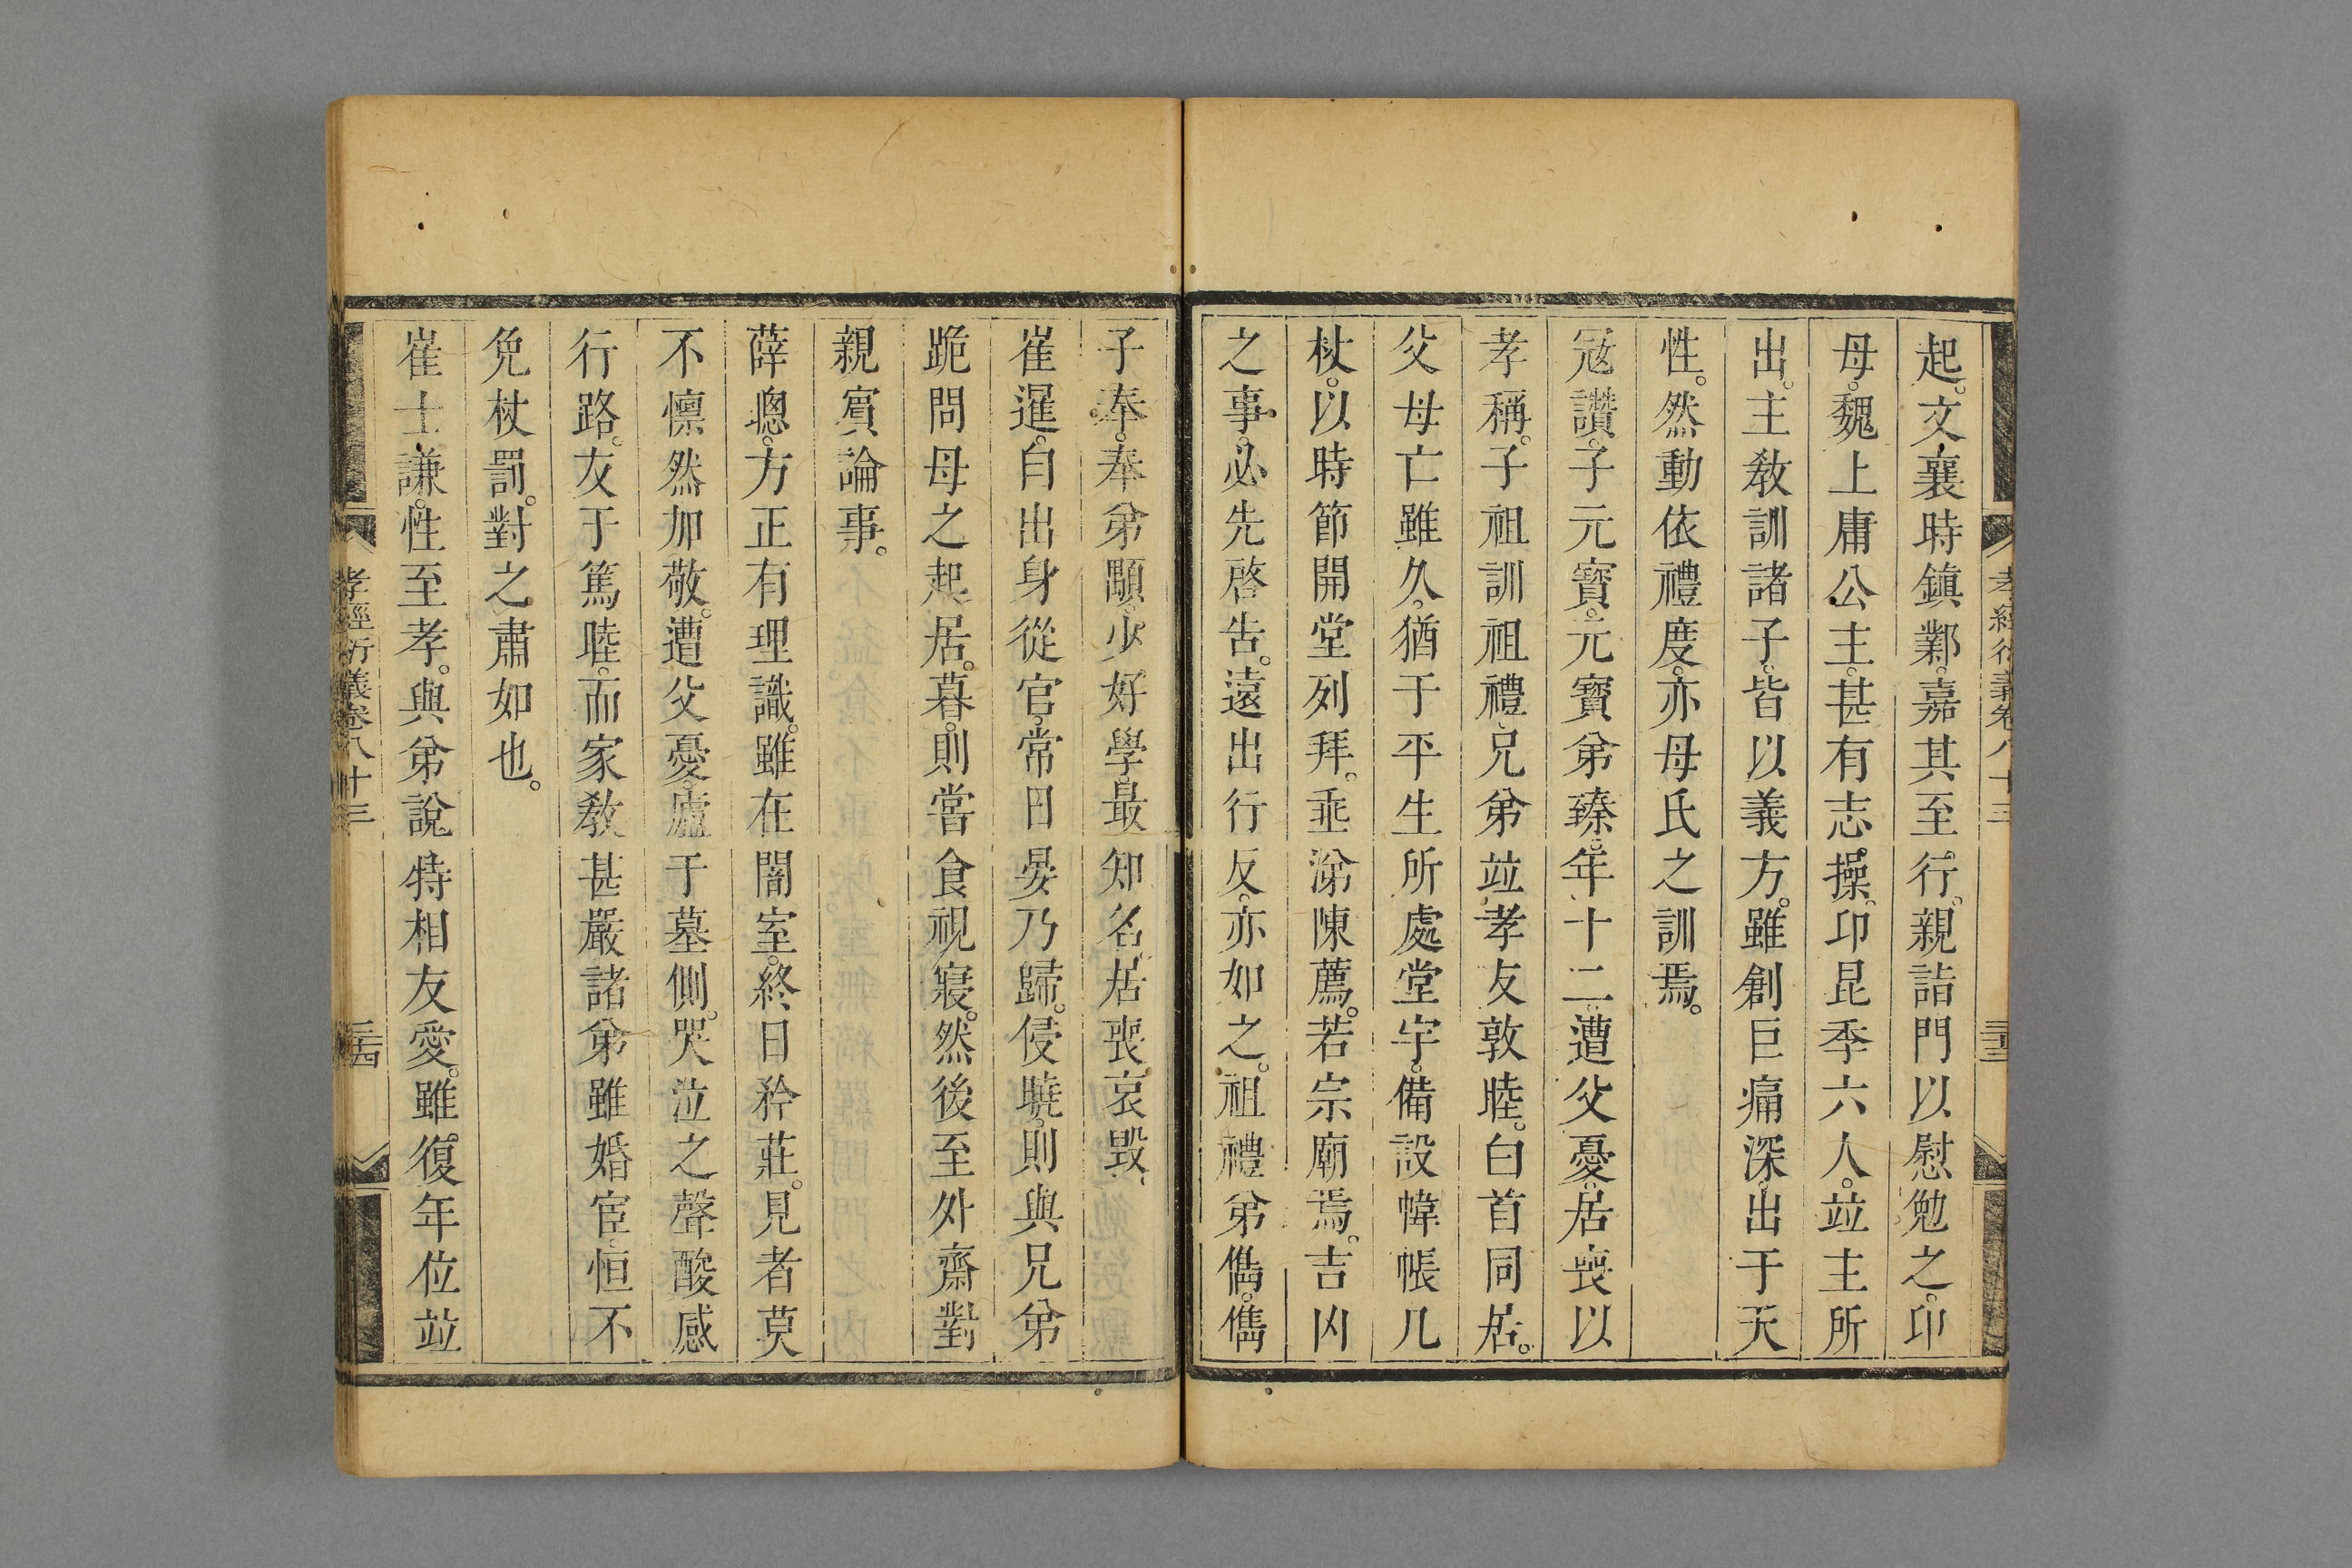 孝經衍義卷八十三
三十三
起。文襄時鎮鄴。嘉其至行。親詣門以慰勉之。卬
母。魏上庸公主。甚有志操。卬昆季六人。竝主所
出。主教訓諸子。皆以義方。雖創巨痛深。出于天
性。然動依禮度。亦母氏之訓焉。
冦讚。子元寶。元寶弟臻。年十二。遭父憂。居喪以
孝稱。子祖訓祖禮。兄弟竝孝友敦睦。白首同居。
父母亡雖久。猶于平生所處堂宇。備設幃帳几
杖。以時節開堂列拜。垂涕陳薦。若宗廟焉。吉凶
之事。必先啓告。遠出行反。亦如之。祖禮弟儁。儁
子奉。奉弟顒。少好學。最知名。居喪哀毀。
崔暹。自出身從官。常日晏乃歸。侵曉。則與兄弟
跪問母之起居。暮。則嘗食視寢。然後至外齋對
親賓論事。
薛聰。方正有理識。雖在闇室。終日矜莊。見者莫
不懍然加敬。遭父憂。廬于墓側。哭泣之聲酸感
行路。友于篤睦。而家教甚嚴。諸弟雖婚宦。恒不
免杖罰。對之肅如也。
崔士謙。性至孝。與弟說特相友愛。雖復年位竝
孝經衍義卷八十三
三十四